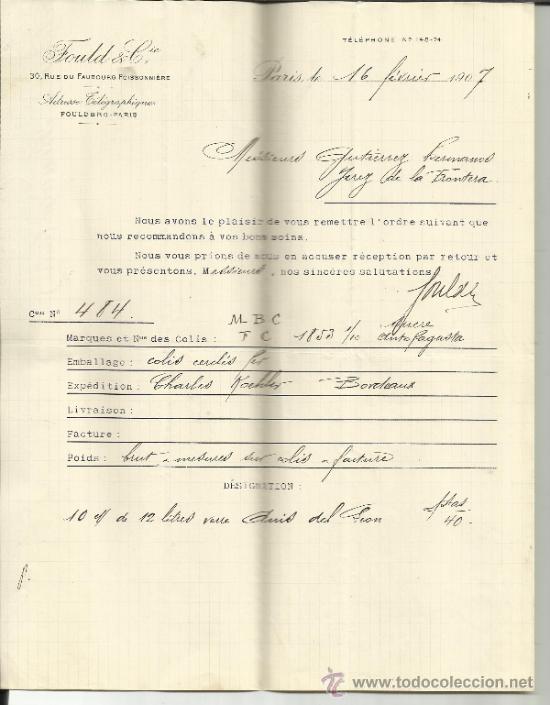 TÉLÉPHONE Nº 148-74
Fould & Cie
30, RUE DU FAUBOURG POISSONNIÈRE
Adresse Télégraphique
FOULDBRO-PARIS
Paris, le 16 février 1907
Messieurs Gutierrez Hermanos
Jerez de la Frontera
Nous avons le plaisir de vous remettre l'ordre suivant que
nous recommandons à vos bons soins.
Nous vous prions de nous en accuser réception par retour et
vous présentons, Messieurs, nos sincères salutations
Fould
Cde Nº 484.
M B C
Marques et Nos des Colis: F C 1853 1/10
Antofagasta
Emballage: colis cerclés fer
Expédition: Charles Koehler Bordeaux
Livraison:
Facture:
Poids: brut - mesures sur colis - facture
DÉSIGNATION:
10 de 12 litres verre Anis del
ptas
40.
todocoleccion
www.todocoleccion.net